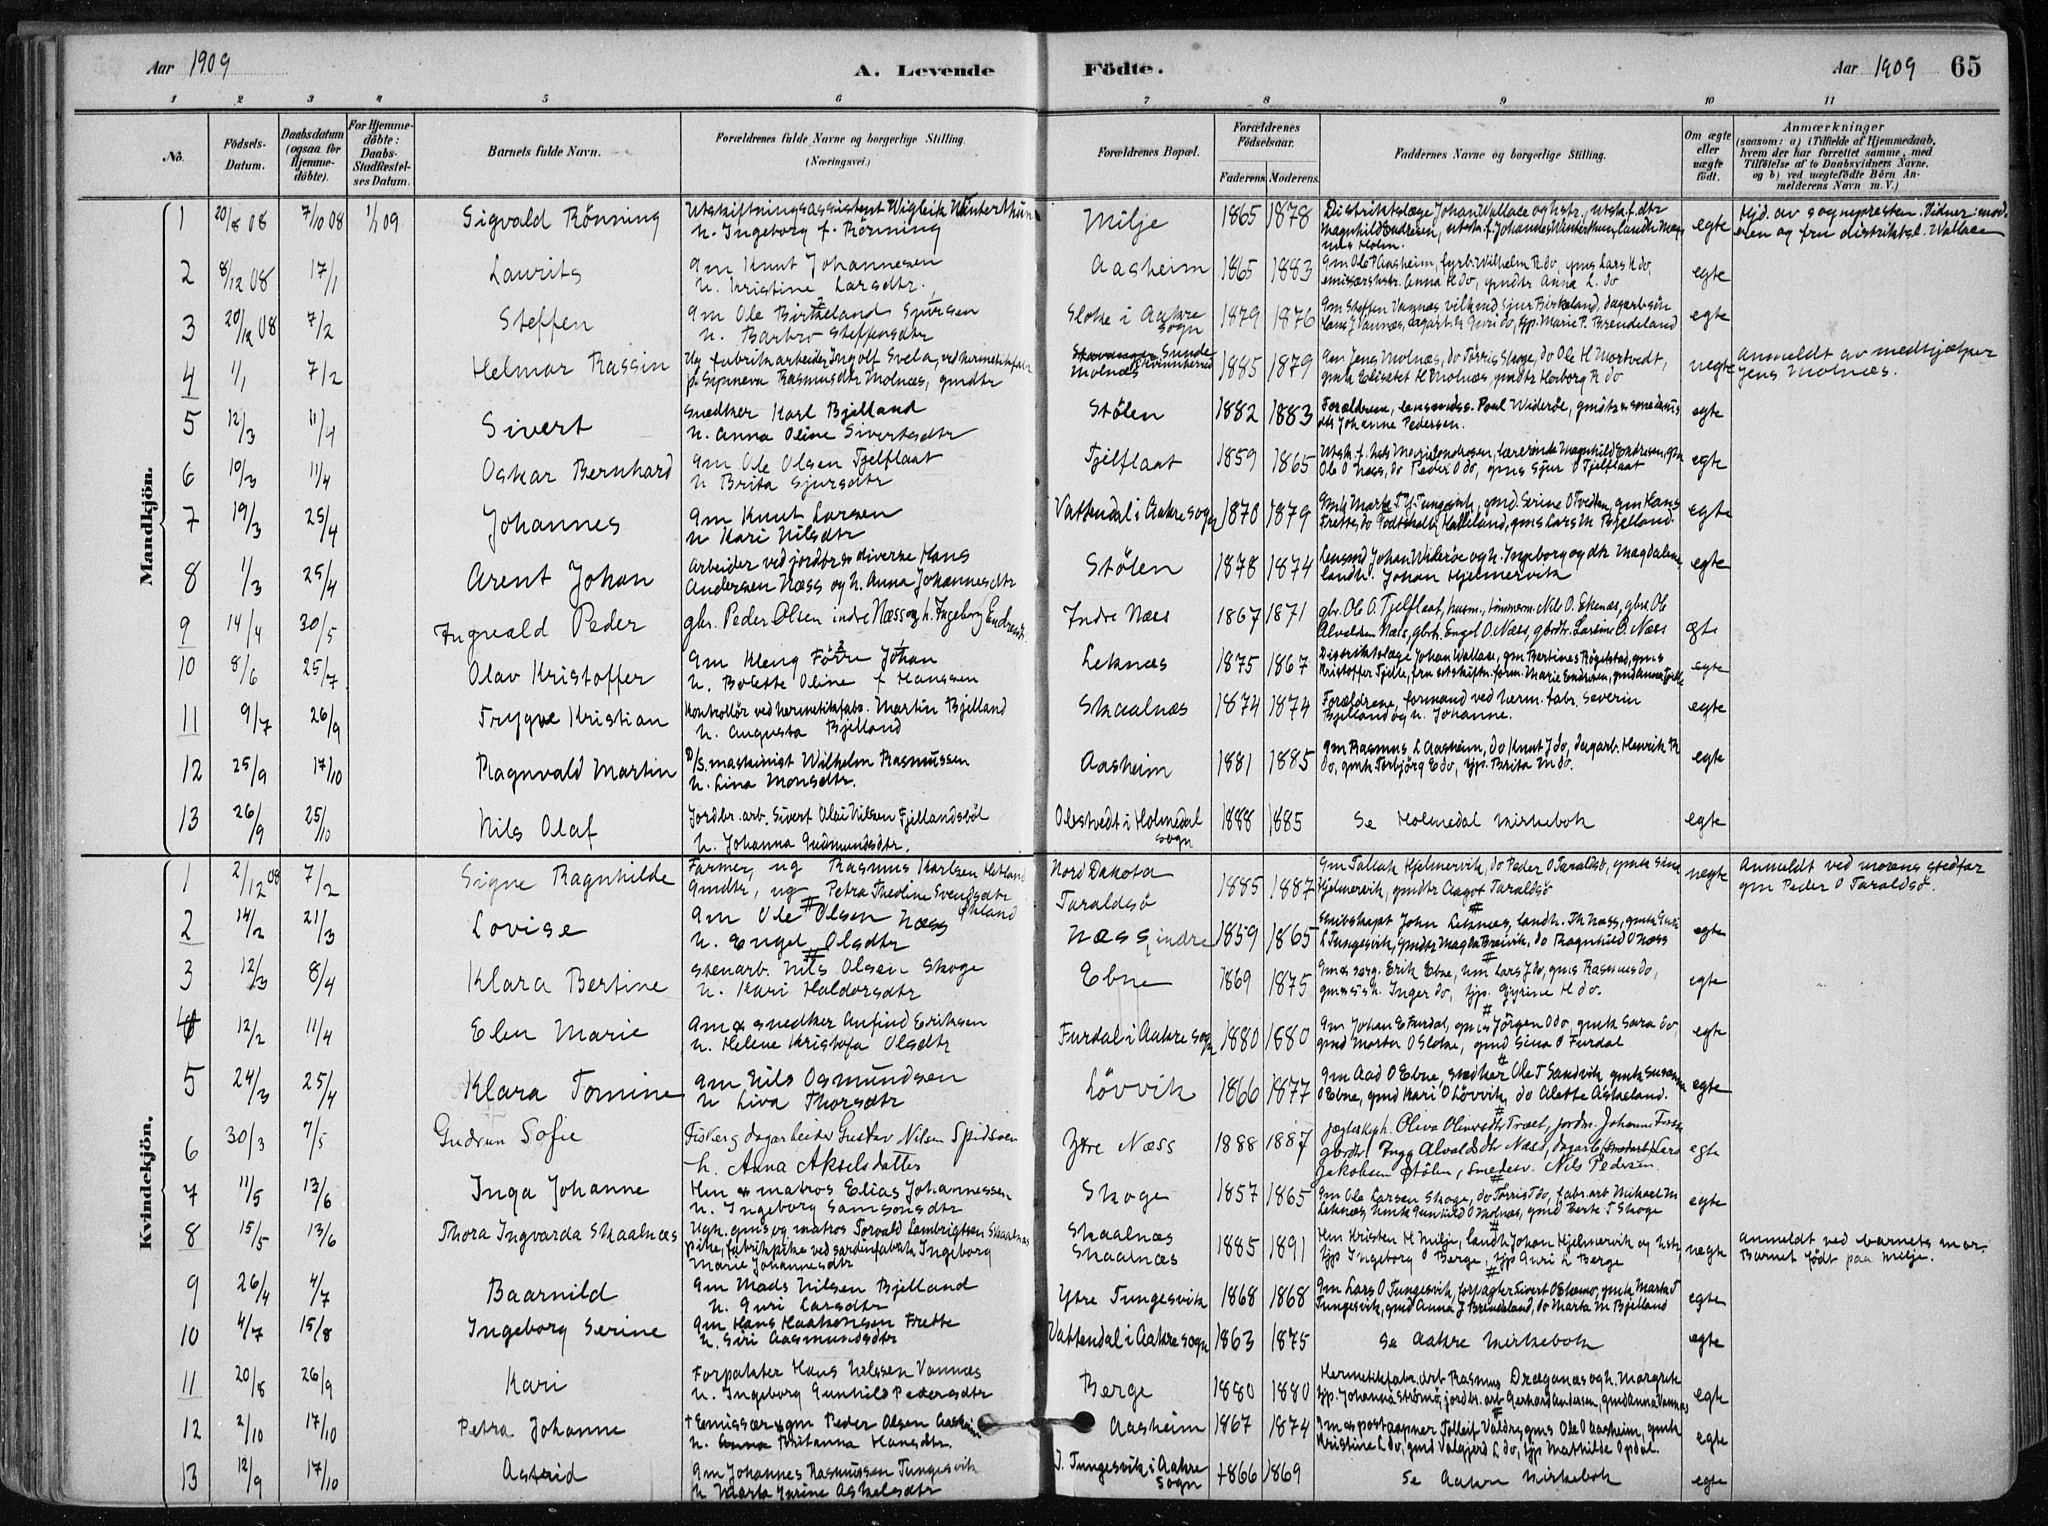 Aar 1909 A. Levende Födte. Aar 1909 65
1 2 3 4 5 6 7 8 9 10 11
No. Födsels-Datum. Daabsdatum (ogsaa for Hjemme-döbte). For Hjemme-döbte: Daabs-Stadfæstel-ses Datum. Barnets fulde Navn. Forældrenes fulde Navne og borgerlige Stilling. (Næringsvei.) Forældrenes Bopæl. Forældrenes Födselsaar. Faderens. Moderens. Faddernes Navne og borgerlige Stilling. Om ægte eller uægte födt. Anmærkninger (saasom: a) i Tilfælde af Hjemmedaab, hvem der har forrettet samme, med Tilföielse af to Daabsvidners Navne, og b) ved uægtefödte Börn An-melderens Navn m. V.)
Mandkjön.
1 20/8 08 7/10 08 1/1 09 Sigvald Rönning Utskiftningsassistent Wigleik Winterthun Milje 1865 1878 Distriktslæge Johan Wallace og hstr., egte Hjd. av sognepresten. Vidner: mod-
h. Ingeborg f. Rönning eren og fru distriktsl. Wallace
2 8/12 08 17/1 Laurits Gm Knut Johannesen Aasheim 1865 1883 Gm Ole P Aasheim, fyrb. Wilhelm R do, gms Lars K do, egte
h. Kristine Larsdtr. Anna H do, gmdtr Anna L. do
3 20/12 08 7/2 Steffen Gm Ole Birkeland Sjursen Sloke i Aakre sogn 1879 1876 Gm Steffen Vannæs Sjur Birkeland, egte
h. Barbro Steffensdtr Guri do, tjp. Marie P. Brendeland
4 1/1 7/2 Helmar Rassin Ug fabrikarbeider Ingolf Svela, ved hermetikfabr Sunde Molnæs 1885 1879 Gm Jens Molnæs, do Törris Skoge, do Ole H Mortvedt, uegte Anmeldt av medhjælper
p. Synneva Rasmusdtr Molnæs, gmdtr gmk Elisabet H Molnæs, gmdtr Herborg R do Jens Molnæs.
5 12/3 11/4 Sivert Snedker Karl Bjelland Stölen 1882 1883 Forældrene, Poul Wideröe, egte
h. Anna Oline Sivertsdtr Johanne Pedersen.
6 10/3 11/4 Oskar Bernhard Gm Ole Olsen Tjelflaat Tjelflaat 1859 1865 Magnhild Endresen, egte
h Brita Sjursdtr Ole O Næss, do Peder O do, gms Sjur O Tjelflaat
7 19/3 25/4 Johannes Gm Knut Larsen Vattendal i Aakre sogn 1870 1879 gmd. Serine O Tveden, gm Hans egte
h Kari Nilsdtr Frette, gms Lars M Bjelland.
8 1/3 25/4 Arent Johan Arbeider ved jordbr og diverse Hans Stölen 1878 1874 Lensmd Johan Wideröe og h. Ingeborg og dtr Magdalene, egte
Andersen Næss og h. Anna Johannesdtr landh. Johan Hjelmervik
9 14/4 30/5 Ingvald Peder gbr. Peder Olsen indre Næss og h. Ingeborg Endresdtr. Indre Næs 1867 1871 gbr. Ole O. Tjelflaat, husm., tömmerm. Nils O. Ekenæs, gbr. Ole ægte
Alvaldsen Næss, gbrdtr. Engel O. Næss, gbrdtr. Larsine O. Næss
10 8/6 25/7 Olav Kristoffer Gm Kleng Förre Johan Leknæs 1875 1867 Distriktslæge Johan Wallace, gm Bertines Bögelstad, gms egte
h. Bolette Oline f Hanssen Kristoffer Tjelle, Marie Endresen, gmd Anna Tjelle
11 9/7 26/9 Trygve Kristian Kontrollör ved hermetikfabr. Martin Bjelland Skaalnæs 1874 1874 Forældrene, formand ved herm. fabr. Severin egte
h. Augusta Bjelland Bjelland og h. Johanne.
12 25/9 17/10 Ragnvald Martin D/S. maskinist Wilhelm Rasmussen Aasheim 1881 1885 Gm Rasmus L Aasheim, do Knut J do, dagarb. Henrik R egte
h. Lina Monsdtr. do, gmk Torbjörg E do, tjp. Brita M do.
13 26/9 25/10 Nils Olaf Jordbr. arb. Sivert Olai Nilsen Fjellandsböl Olestvedt i Holmedal sogn 1888 1885 Se Holmedal kirkebok egte
h. Johanna Gudmundsdtr.
Kvindekjön.
1 2/12 08 7/2 Signe Ragnhilde Farmer, ug Rasmus Karlsen Hetland Nord Dakota 1885 1887 Gm Tallak Hjelmervik, do Peder O Taraldsö, gmk Sina uegte Anmeldt ved morens stedfar
Gmdtr, ug Petra Theoline Svendsdtr Ökland Taraldsö Hjelmervik, gmdtr Aagot Taraldsö gm Peder O Taraldsö.
2 14/2 21/3 Lovise Gm Ole Olsen Næss Næss, indre 1859 1865 Skibskapt John Leknæs, landh. Th Næss, gmk Guri egte
h. Engel Olsdtr L Tungesvik, gmdtr Magla Breivik, do Ragnhild O Næss
3 12/3 8/4 Klara Bertine Stenarb. Nils Olsen Skoge Ebne 1869 1875 Erik Ebne, Lars J do, gms Rasmus do, egte
h. Kari Haldorsdtr Inger do, tjp. Gjyrine H do.
4 12/2 11/4 Elen Marie Gm & snedker Anfind Eriksen Furdal i Aakre sogn 1880 1880 Gm Johan E Furdal, gms Jörgen O do, gmk Sara do, egte
h. Helene Kristofa Olsdtr gmd Marta O Sloke, gmd Sina O Furdal
5 24/3 25/4 Klara Tomine Gm Nils Osmundsen Lövvik 1866 1877 Gm Aad O Ebne, snedker Ole T Sandvik, gmk Susanna egte
h Liva Thorsdtr O Ebne, gmd Kari O Lövvik, do Alette Askeland.
6 30/3 7/5 Gudrun Sofie Fisker & dagarbeider Gustav Nilsen Spidsöen Ytre Næss 1888 1887 Oliva Oliversdtr Træt, Johanne egte
h. Anna Akselsdatter gbrdtr Inga Alvaldsdtr Næss, dagarb. Lars Jakobsen Stölen, smedesv. Nils Pedersen
7 11/5 13/6 Inga Johanne Hm & matros Elias Johannessen Skoge 1857 1865 Gm Ole Larsen Skoge, do Törris T do, fabr.arb Mikael M egte
h. Ingeborg Samsonsdtr Leknæs, hmk Gunhild O Molnæs, gmd Berte T Skoge
8 15/5 13/6 Thora Ingvarda Skaalnæs Ugk. gms og matros Torvald Lambrigtsen Skaalnæs Skaalnæs 1885 1891 Hm Kristen H Milje, landh Johan Hjelmervik og hstr, uegte Anmeldt ved barnets mor.
pike, fabrikpike ved sardinfabrik Ingeborg Marie Johannesdtr Skaalnæs tjp Ingeborg O Berge, tjp Guri L Berge Barnet födt paa Milje.
9 26/4 4/7 Baarnild Gm Mads Nilsen Bjelland Ytre Tungesvik 1868 1868 Gm Lars O Tungesvik, forpagter Sivert gmk Marta T egte
h. Guri Larsdtr Tungesvik, gmd Anna J Brendeland, do Marta M Bjelland
10 4/7 15/8 Ingeborg Serine Gm Hans Haakonsen Frette Vattendal i Aakre sogn 1863 1875 Se Aakre kirkebok egte
h. Siri Aasmundsdtr
11 20/8 26/9 Kari Forpakter Hans Nilssen Vannæs Berge 1880 1880 Hermetikfabr. arb Rasmus Dræganæs og h. Margrete egte
h. Ingeborg Gunhild Pedersdtr tjp. Johanna Strömö, jordbr. arb Gerhard Andersen, gmd Anna Vannæs
12 2/10 17/10 Petra Johanne + Emissær & gm Peder Olsen Aasheim Aasheim 1867 1874 Gm & postaapner Tolleif Valdrs, gms Ole O Aasheim, gmk egte
h. Anna Britanna Hansdtr. Kristine L do, gmd Valgjerd L do, tjp Mathilde Opdal.
13 12/9 17/10 Astrid Gm Johannes Rasmussen Tungesvik I. Tungesvik i Aakre sogn 1866 1869 Se Aakre kirkebok egte
h Marta Askelsdtr